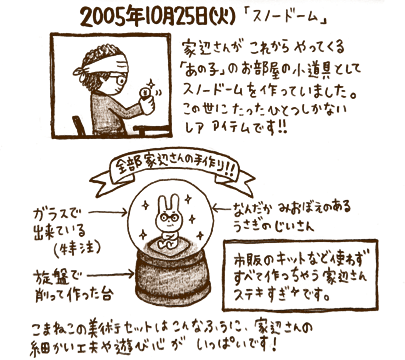 2005年10月25日(火)「スノードーム」
家辺さんが これから やってくる
「あの子」のお部屋の小道具として
スノードームを作っていました。
この世に たったひとつしかない
レア アイテムです!!
全部家辺さんの手作り!!
ガラスで
出来ている
(特注)
なんだか みおぼえのある
うさぎのじいさん
旋盤で
削って作った台
市販のキットなど使わず
すべて作っちゃう家辺さん
ステキすぎです。
こまねこの美術セットはこんなふうに、家辺さんの
細かい工夫や遊び心が いっぱいです!